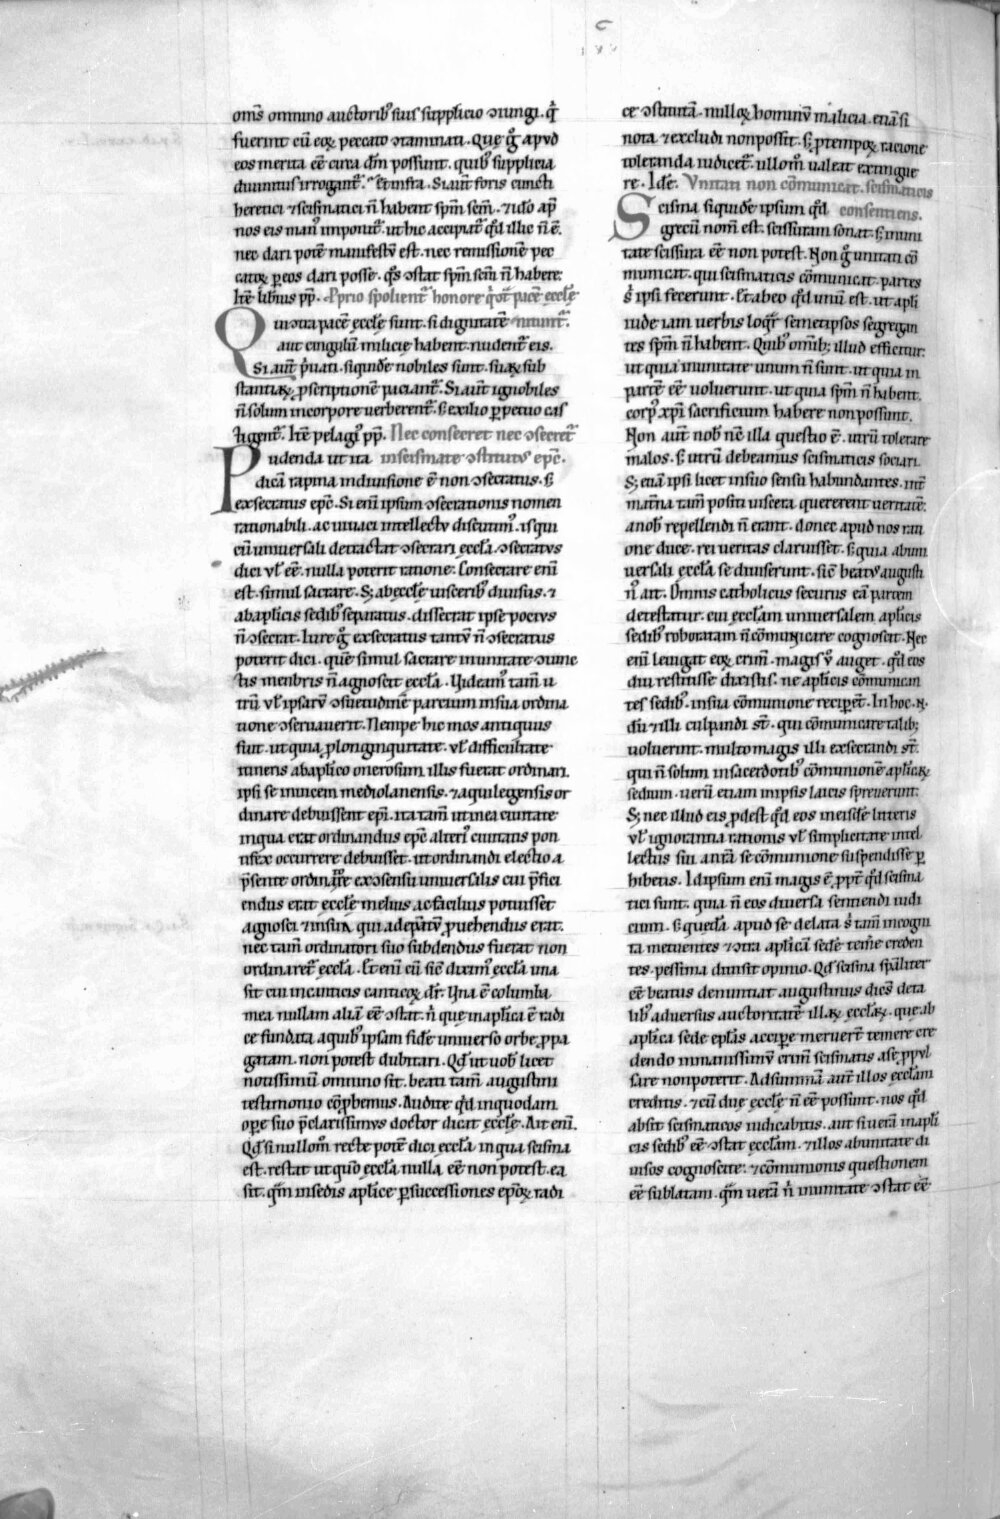 oms̄ omnino auctorib' suis supplicio ɔiungi. q̄
fuerint cū eoꝝ peccato ɔtaminati. Que g̊ apud
eos merita eē cura dm̄ possunt. quib' supplicia
diuinitus irrogant᷑. Et infra. Si aut̄ foris cuncti
heretici ⁊ scismatici n̄ habent spm̄ scm̄. ⁊ ido ap̄
nos eis man' imponit᷑. ut hic accipiat᷑ qd̄ illic n̄ ē.
nec dari potē manifestū est. nec remissionē pec
catoꝝ ꝑ eos dari posse. q̊s ɔstat spm̄ scm̄ n̄ habere.
Itē liberius pp̄. Pprio spolient᷑ honore pacē eccl̄e
Qui ɔtra pacē eccl̄e sunt. si dignitatē
aut cingulū milicie habent. nudent᷑ eis.
Si aut̄ p̄uati. siquidē nobiles sunt. suaꝝ sub
stantiaꝝ ꝓscriptionē paciant᷑. Si aut̄ ignobiles
n̄ solum in corpore uerberent᷑. s; exilio ꝑpetuo cas
tigent᷑. Itē pelagi' pp̄. Nec consecret nec ɔsecret᷑
Pudenda ut ita in scismate ɔstitutus epc̄.
dicā rapina in diuisione ē non ɔsecratus. s;
exsecratus epc̄. Si enī ipsum ɔsecrationis nomen
rationabili. ac uiuaci intellectu discutim'. is qui
cū uniuersali detractat ɔsecrari eccl̄a. ɔsecratus
dici ul̄ eē. nulla poterit ratione. Consecrare enī
est. simul sacrare. S; ab eccl̄e uiscerib' diuisus. ⁊
ab ap̄licis sedib' separatus. dissecrat ipse pocius
n̄ ɔsecrat. Iure g̊ exsecratus tantū n̄ ɔsecratus
poterit dici. quē simul sacrare in unitate ɔiunc
tis menbris n̄ agnoscit eccl̄a. Videam' tam̄ u
trū ul̄ ipsarū ɔsuetudinē parcium in sua ordina
tione ɔseruauerit. Nempe hic mos antiquus
fuit. ut quia ꝓ longinquitate. ul̄ difficultate
itineris ab ap̄lico onerosum illis fuerat ordinari.
ipsi se inuicem mediolanensis. ⁊ aquilegensis or
dinare debuissent epī. ita tam̄ ut in ea ciuitate
in qua erat ordinandus epc̄ alteri' ciuitatis pon
tifex occurrere debuisset. ut ordinandi electio a
p̄sente ordinatore ex ɔsensu uniuersalis cui p̄fici
endus erat eccl̄e melius ac facilius potuisset
agnosci ⁊ in sua qui adeptus ꝓuehendus erat.
nec tam̄ ordinatori suo subdendus fuerat non
ordinaret᷑ eccl̄a. Et enī cū sic̄ diximus eccl̄a una
sit cui in canticis canticoꝝ dr̄. Una ē columba
mea nullam aliā eē ɔstat. n̄ que in ap̄lica ē radi
ce fundata a quib' ipsam fidē uniuerso orbe ꝓpa
gatam. non potest dubitari. Qd̄ ut uob̄ licet
notissimū omnino sit. beati tam̄ augustini
testimonio cōprobemus. Audite qd̄ in quodam
opere suo p̄clarissimus doctor dicat eccl̄e. Ait enī.
Qd̄ si nullom̄ recte potē dici eccl̄a in qua scisma
est. restat ut quo eccl̄a nulla eē non potest. ea
sit. q̄m in sedis ap̄lice ꝑ successiones epōꝝ radi
ce ɔstitutā. nulloꝝ hominū malicia. etiā si
nota ⁊ excludi non possit. s; p tempoꝝ racione
toleranda iudicet᷑. ullom̄ ualeat extingue
re. Idē. Vnitati non cōmunicat. scismaticis
Scisma siquidē ipsum qd̄ consentiens.
grecū nom̄ est. scissuram sonat. s; in uni
tate scissura eē non potest. Non g̊ unitati cō
municat. qui scismaticis cōmunicat. partes
s; ipsi fecerunt. Et ab eo qd̄ unū est. ut ap̄li
iude iam uerbis loq̄r semetipsos segregan
tes spm̄ n̄ habent. Quib' omib; illud efficitur.
ut quia in unitate unum n̄ sunt. ut quia in
partē eē uoluerunt. ut quia spm̄ n̄ habent.
corp' xp̄i sacrificium habere non possunt.
Non aut̄ nob̄ nc̄ illa questio ē. utrū tolerare
malos. s; utrū debeamus scismaticis sociari.
S; etiā ipsi licet in suo sensu habundantes. int̄
mat̄na tam̄ positi uiscera quererent ueritatē.
a nob̄ repellendi n̄ erant. donec apud nos rati
one duce. rei ueritas claruisset. s; quia ab uni
uersali eccl̄a se diuiserunt. sic̄ beatus augusti
n' ait. Omnis catholicus securus eā partem
detestatur. cui eccl̄iam uniuersalem ap̄licis
sedib' roboratam n̄ cōmunicare cognoscit. Nec
enī leuigat eoꝝ crim̄. magis u' auget. qd̄ eos
diu restitisse dixistis. ne ap̄licis cōmunican
tes sedib'. in sua cōmunione recipent. In hoc. n̄.
diu ⁊ illi culpandi st̄. qui cōmunicare talib;
uoluerint. multo magis illi exsecrandi st̄.
qui n̄ solum in sacerdotib' cōmunionē ap̄licaꝝ
sedium. uerū etiam in ipsis laicis spreuerunt.
S; nec illud eis ꝓdest qd̄ eos in eis se litteris
ul̄ ignorantia rationis ul̄ simplicitate intel
lectus sui antea se cōmunione suspendisse ꝑ
hibetis. Id ipsum enī magis ē ppt̄ qd̄ scisma
tici sunt. quia n̄ eos diuersa sentiendi iudi
cium. s; quedā apud se delata s; tam̄ incogni
ta metuentes ⁊ ɔtra ap̄licā sedē temē creden
tes. pessima diuisit opinio. Qd̄ scisma spāliter
eē beatus denuntiat augustinus dicēs de ta
lib' aduersus auctoritatē illaꝝ eccl̄aꝝ. que ab
ap̄lica sede epl̄as accipe meruert̄ temere cre
dendo inmanissimū crim̄ scismatis a se ꝓpul
sare non poterit. Ad summā aut̄ illos eccl̄am
creditis. ⁊ cū due eccl̄e n̄ eē possunt. nos qd̄
absit scismaticos indicabitis. aut si uerā in ap̄li
cis sedib' eē ɔstat eccl̄am. ⁊ illos ab unitate di
uisos cognoscite. ⁊ cōmunionis questionem
eē sublatam. q̄m uerā n̄ in unitate ɔstat eē